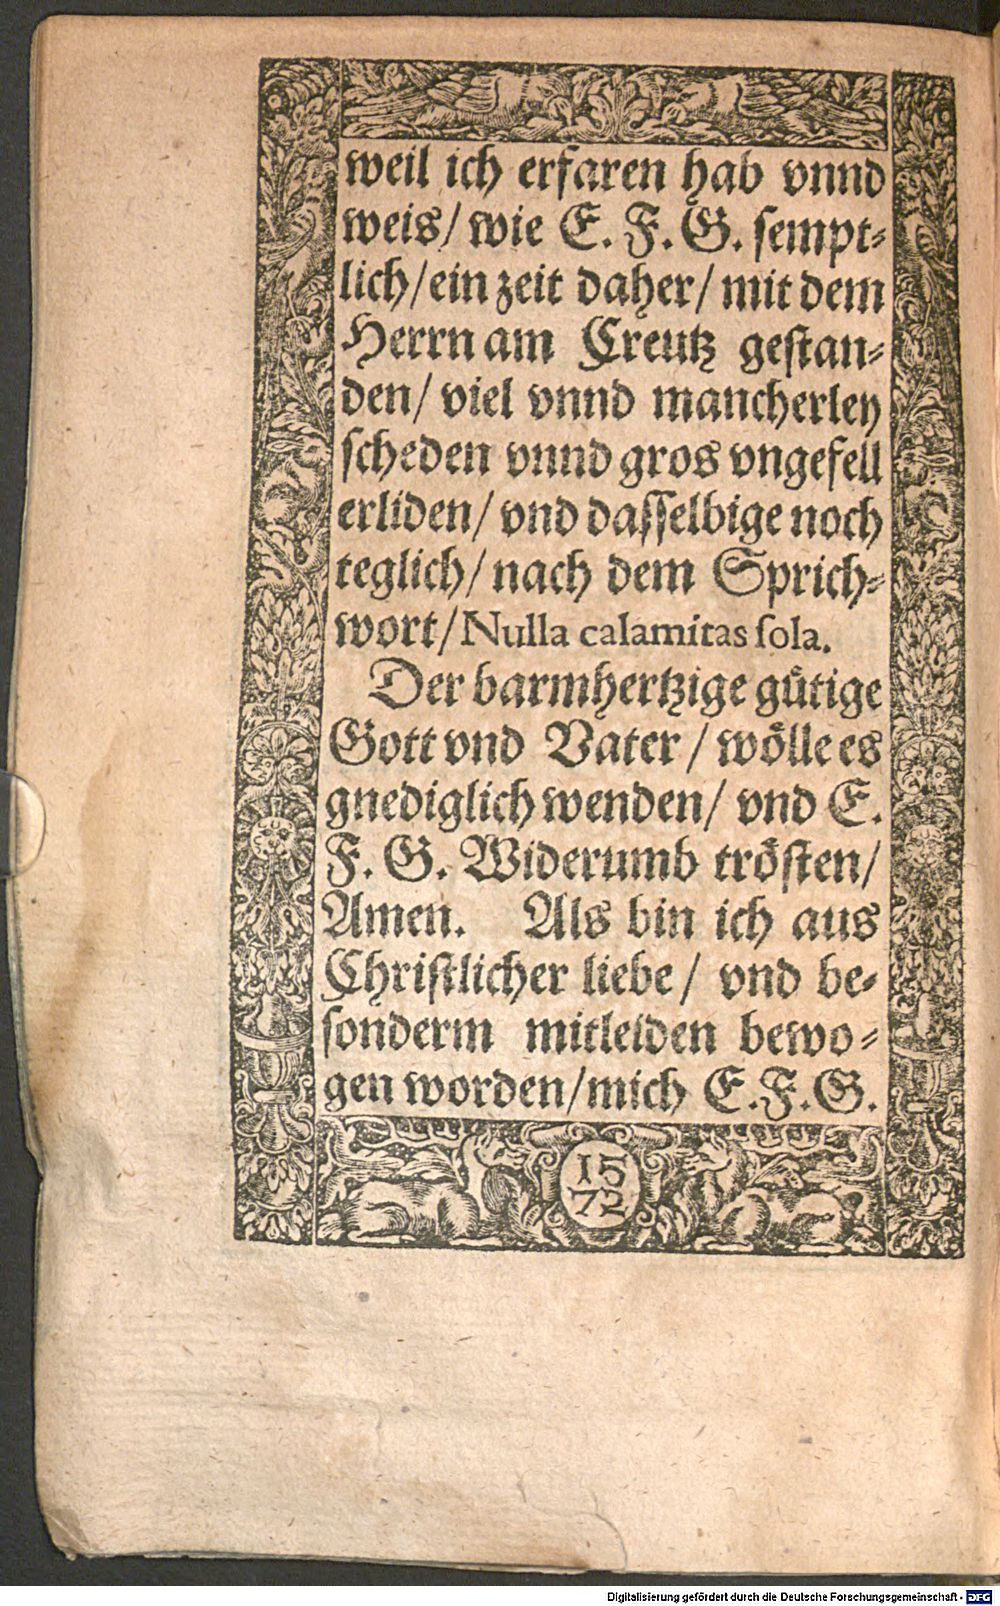 weil ich erfaren hab vnnd
weis/ wie E. F. G. sempt⸗
lich/ ein zeit daher/ mit dem
Herrn am Creutz gestan⸗
den/ viel vnnd mancherley
scheden vnnd gros vngefell
erliden/ vnd dasselbige noch
teglich/ nach dem Sprich⸗
wort/ Nulla calamitas sola.
Der barmhertzige gütige
Gott vnd Vater/ wölle es
gnediglich wenden/ vnd E.
F. G. Widerumb trösten/
Amen. Als bin ich aus
Christlicher liebe/ vnd be⸗
sonderm mitleiden bewo⸗
gen worden/ mich E. F. G.
15
72
Digitalisierung gefördert durch die Deutsche Forschungsgemeinschaft - DFG